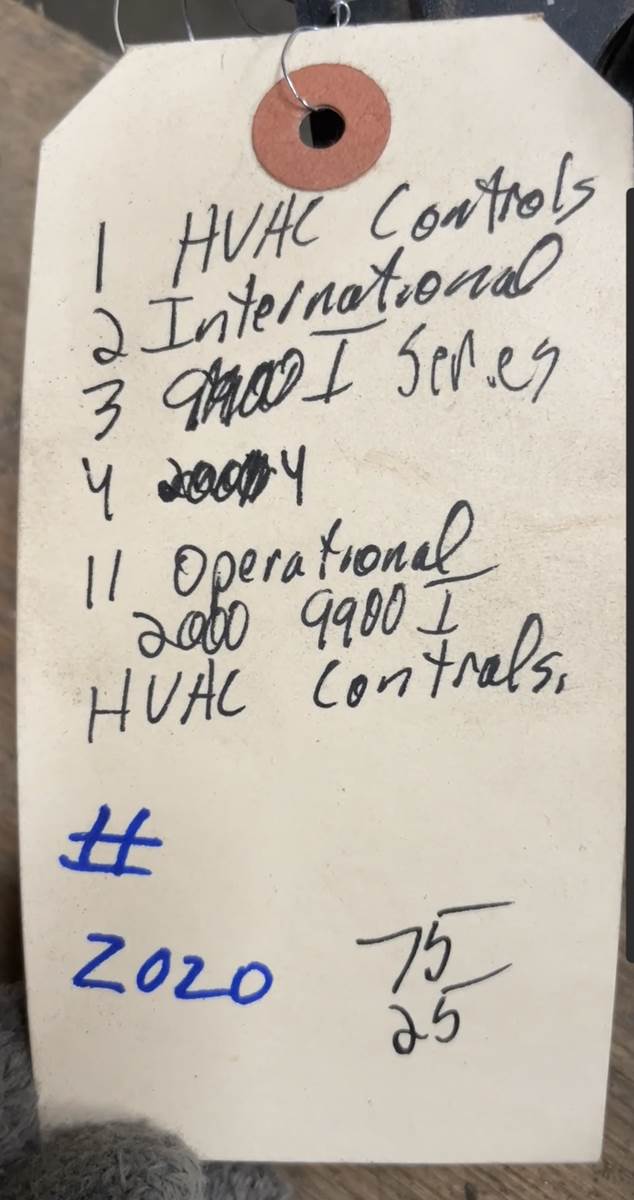 1 HVAC Controls
2 International
3 9900 I Series
4 2000-4
11 Operational
2000 9900 I
HVAC Controls.
#
2020
75
25